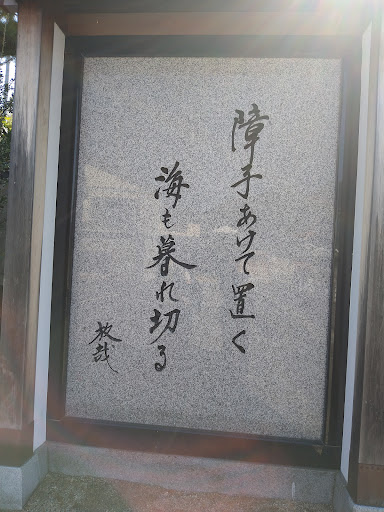 障子あけて置く
海も暮れ切る
放哉